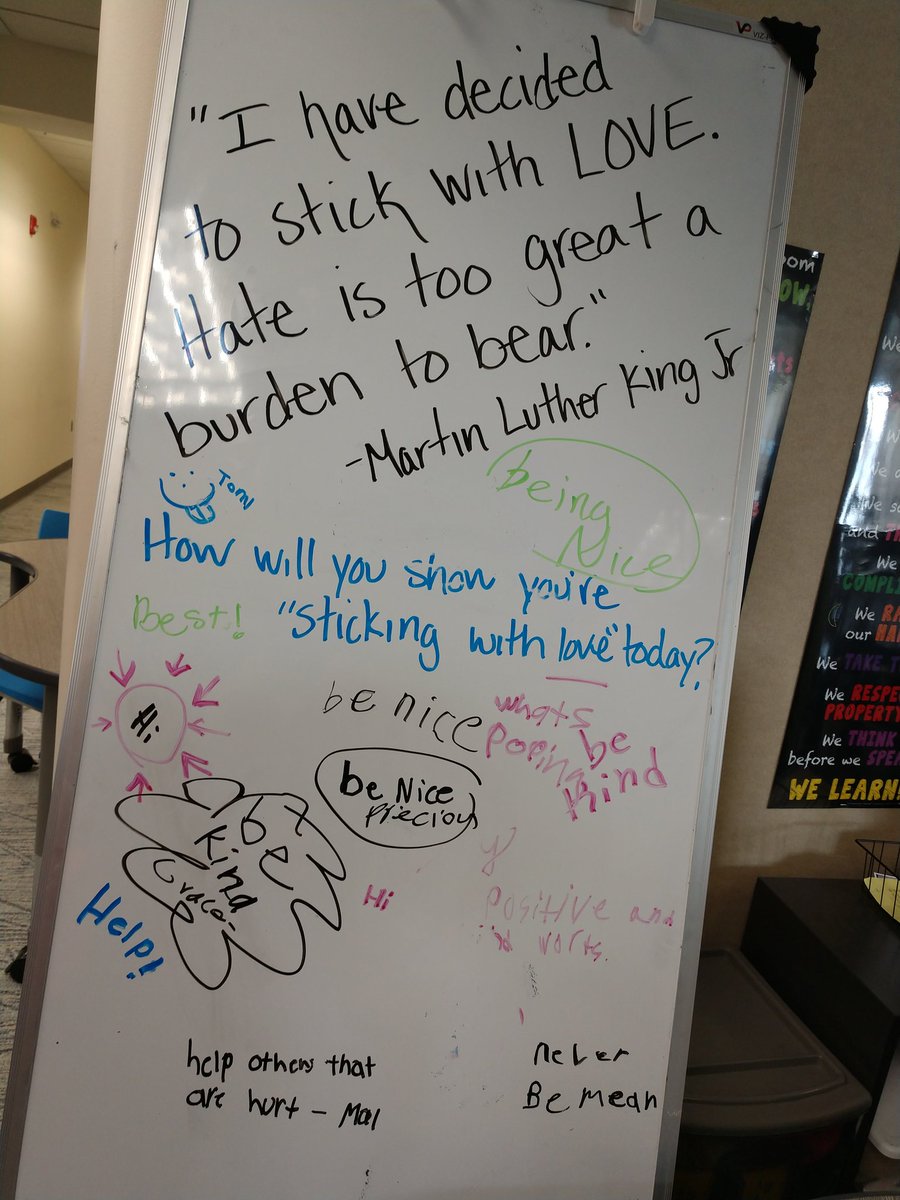 "I have decided
to stick with LOVE.
Hate is too great a
burden to bear."
-Martin Luther King Jr
being
Nice
How will you show you're
Best!
"sticking with love" today?
Hi
be nice
whats
poping
be
kind
be Nice
precious
be
kind
Help!
Hi
positive and
help others that
are hurt -
never
Be mean
We
and
We
We
our
We TAKE
We RESPE
PROPERTY
We THINK
before we SPE
WE LEARN